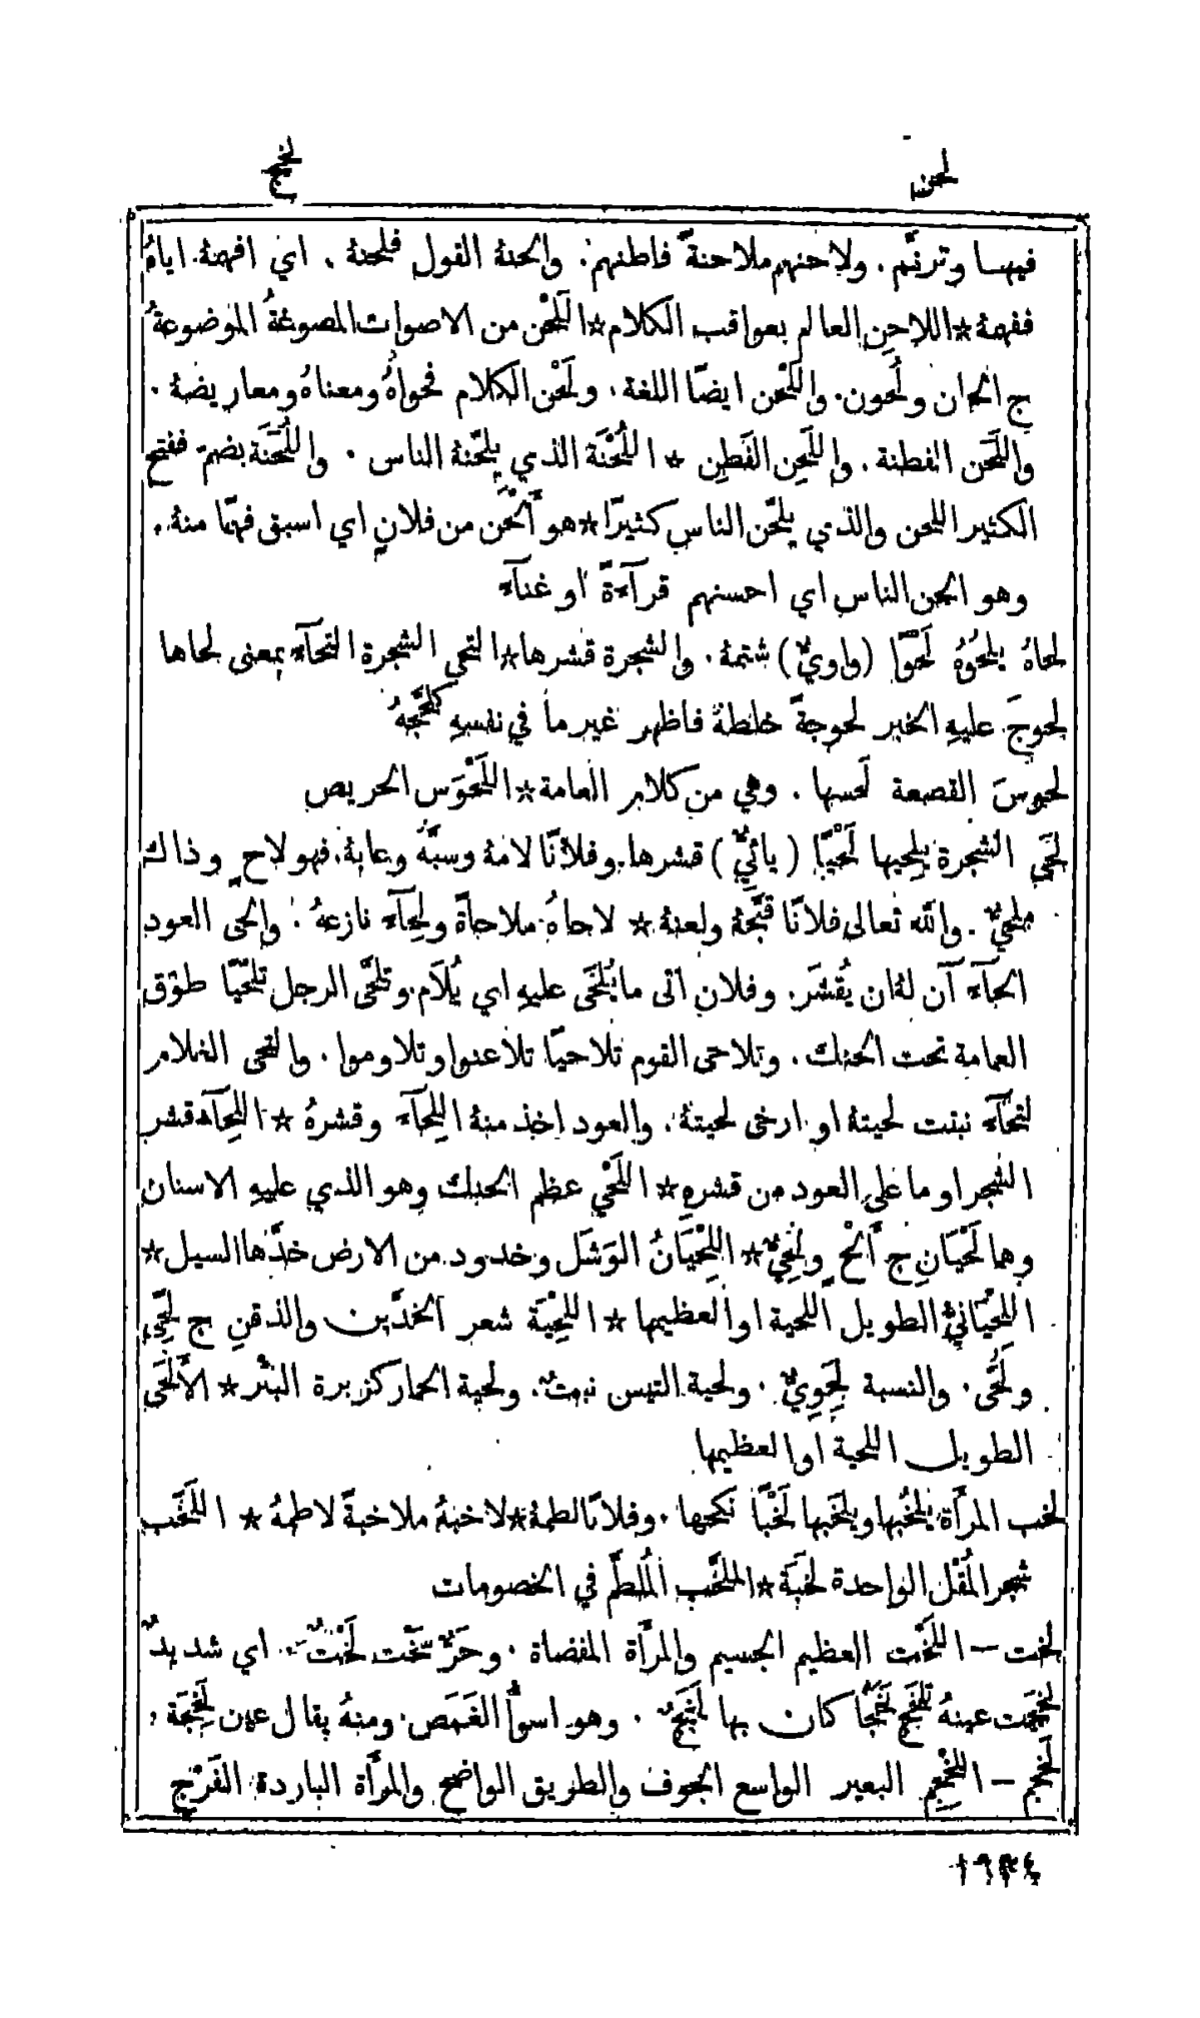 لحن لخج
فيها وترنَّم. ولاحنهم ملاحنةً فاطنهم. والحنهُ القول فلحنهُ. اي افهمهُ اياهُ
ففهمهُ * اللاحِن العالم بعواقب الكلام * اللَّحْن من الاصوات المصوغةُ الموضوعةُ
ج الحان ولُحون. واللَّحْن ايضًا اللغة. ولَحْن الكلام فحواهُ ومعناهُ ومعاريضهُ.
واللَّحَن الفطنة. واللَّحِن الفَطِن * اللُّحْنَة الذي يلحّنهُ الناس. واللُّحَنَة بضمّ ففتح
الكثير اللحن والذي يلحّن الناس كثيرًا * هو أَلْحَن من فلانٍ اي اسبق فهمًا منهُ.
وهو الحن الناس اي احسنهم قرآءةً او غنآء
لحاهُ يلحُوهُ لَحْوًا (واويٌّ) شتمهُ. والشجرة قشرها * التحى الشجرة التحآء بمعنى لحاها
لحوجَ عليهِ الخبر لحوجةً خلطهُ فاظهر غير ما في نفسهِ كلحَّجهُ
لحوسَ القصعة لَحسها. وهي من كلام العامة * اللَّحْوَس الحريص
لَحَى الشجرة يلحِيها لَحْيًا (يائيٌّ) قشرها. وفلانًا لامهُ وسبَّهُ وعابهُ. فهو لاحٍ وذاك
ملحيٌّ. والله تعالى فلانًا قبَّحهُ ولعنهُ * لاحاهُ ملاحاةً ولِحآء نازعهُ. والحى العود
الحآء آن لهُ ان يُقشَر. وفلان اتى ما يُلحَى عليهِ اي يُلَام. وتلحَّى الرجل تلحّيًا طوّق
العامة تحت الحنك. وتلاحى القوم تلاحيًا تلاعنوا وتلاوموا. والتحى الغلام
لتحآء نبتت لحيتهُ او ارخى لحيتهُ. والعود اخذ منهُ اللِّحآء وقشرهُ * اللِّحآء قشر
الشجر او ما على العود من قشرهِ * اللَّحْي عظم الحنك وهو الذي عليهِ الاسنان
وهما لَحْيَانِ ج أَلْحٍ ولُحِيٌّ * اللِّحْيَانُ الوَشَل وخدود من الارض خدَّها السيل *
اللِّحْيَانيُّ الطويل اللحية او العظيمها * اللِّحْيَة شعر الخدَّين والذقن ج لِحًى
ولُحًى. والنسبة لِحَوِيٌّ. ولحية التيس نبتٌ. ولحية الحمار كزبرة البئر * الأَلْحَى
الطويل اللحية او العظيمها
لخب المرأَة يلخُبها ويلخَبها لَخْبًا نكحها. وفلانًا لطمهُ * لاخبهُ ملاخبةً لاطمهُ * اللَّخَب
شجر المُقْل الواحدة لَخَبَة * الملخَّب المُلطَّم في الخصومات
لخت – اللَّخْت العظيم الجسيم والمرأَة المفضاة. وحَرٌّ سَخْت لَخْتٌ اي شديدٌ
لَخِجَت عينهُ تلخَج لَخَجًا كان بها لَخَجٌ. وهو اسوأُ الغَمَص. ومنهُ يقال عين لَخِجَة.
لخجم – اللَّخْجَم البعير الواسع الجوف والطريق الواضح والمرأَة الباردة الفَرْج
١٩٣٤